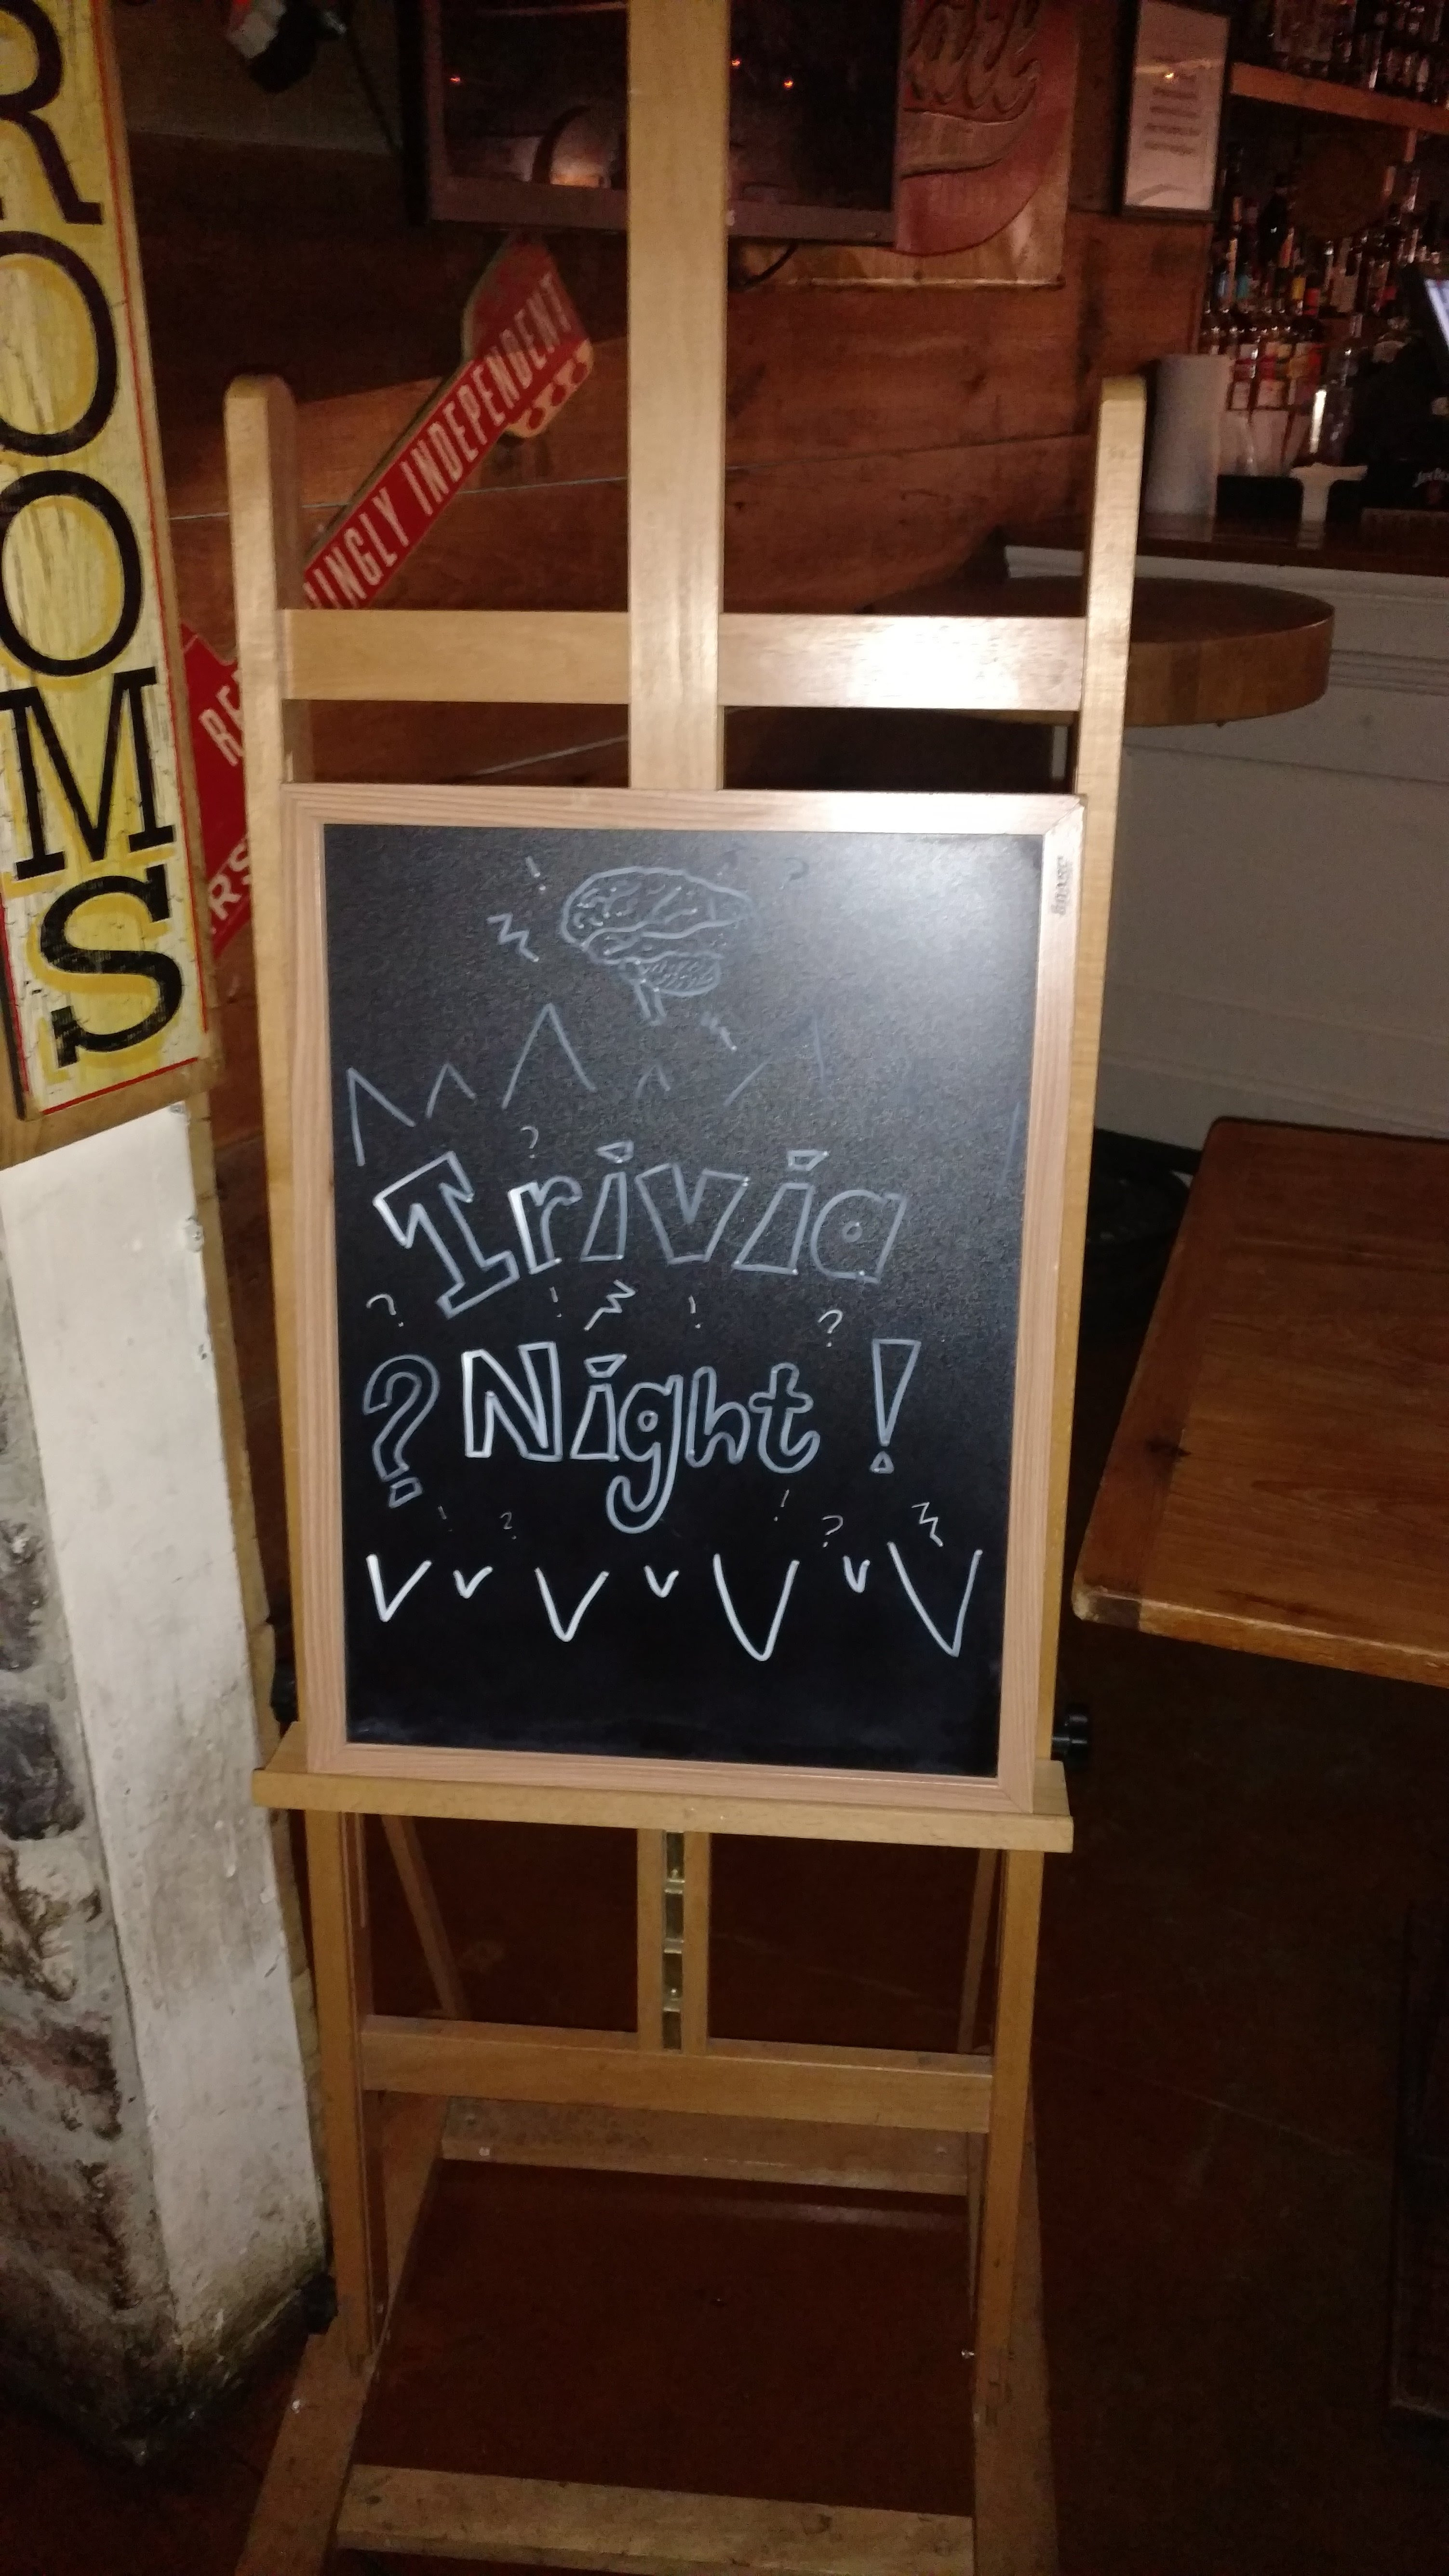 ROOMS
LINGLY INDEPENDENT
RE
RS
Trivia
? Night !